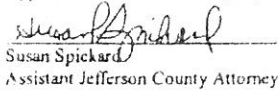 Susan Spickard
Susan Spickard
Assistant Jefferson County Attorney